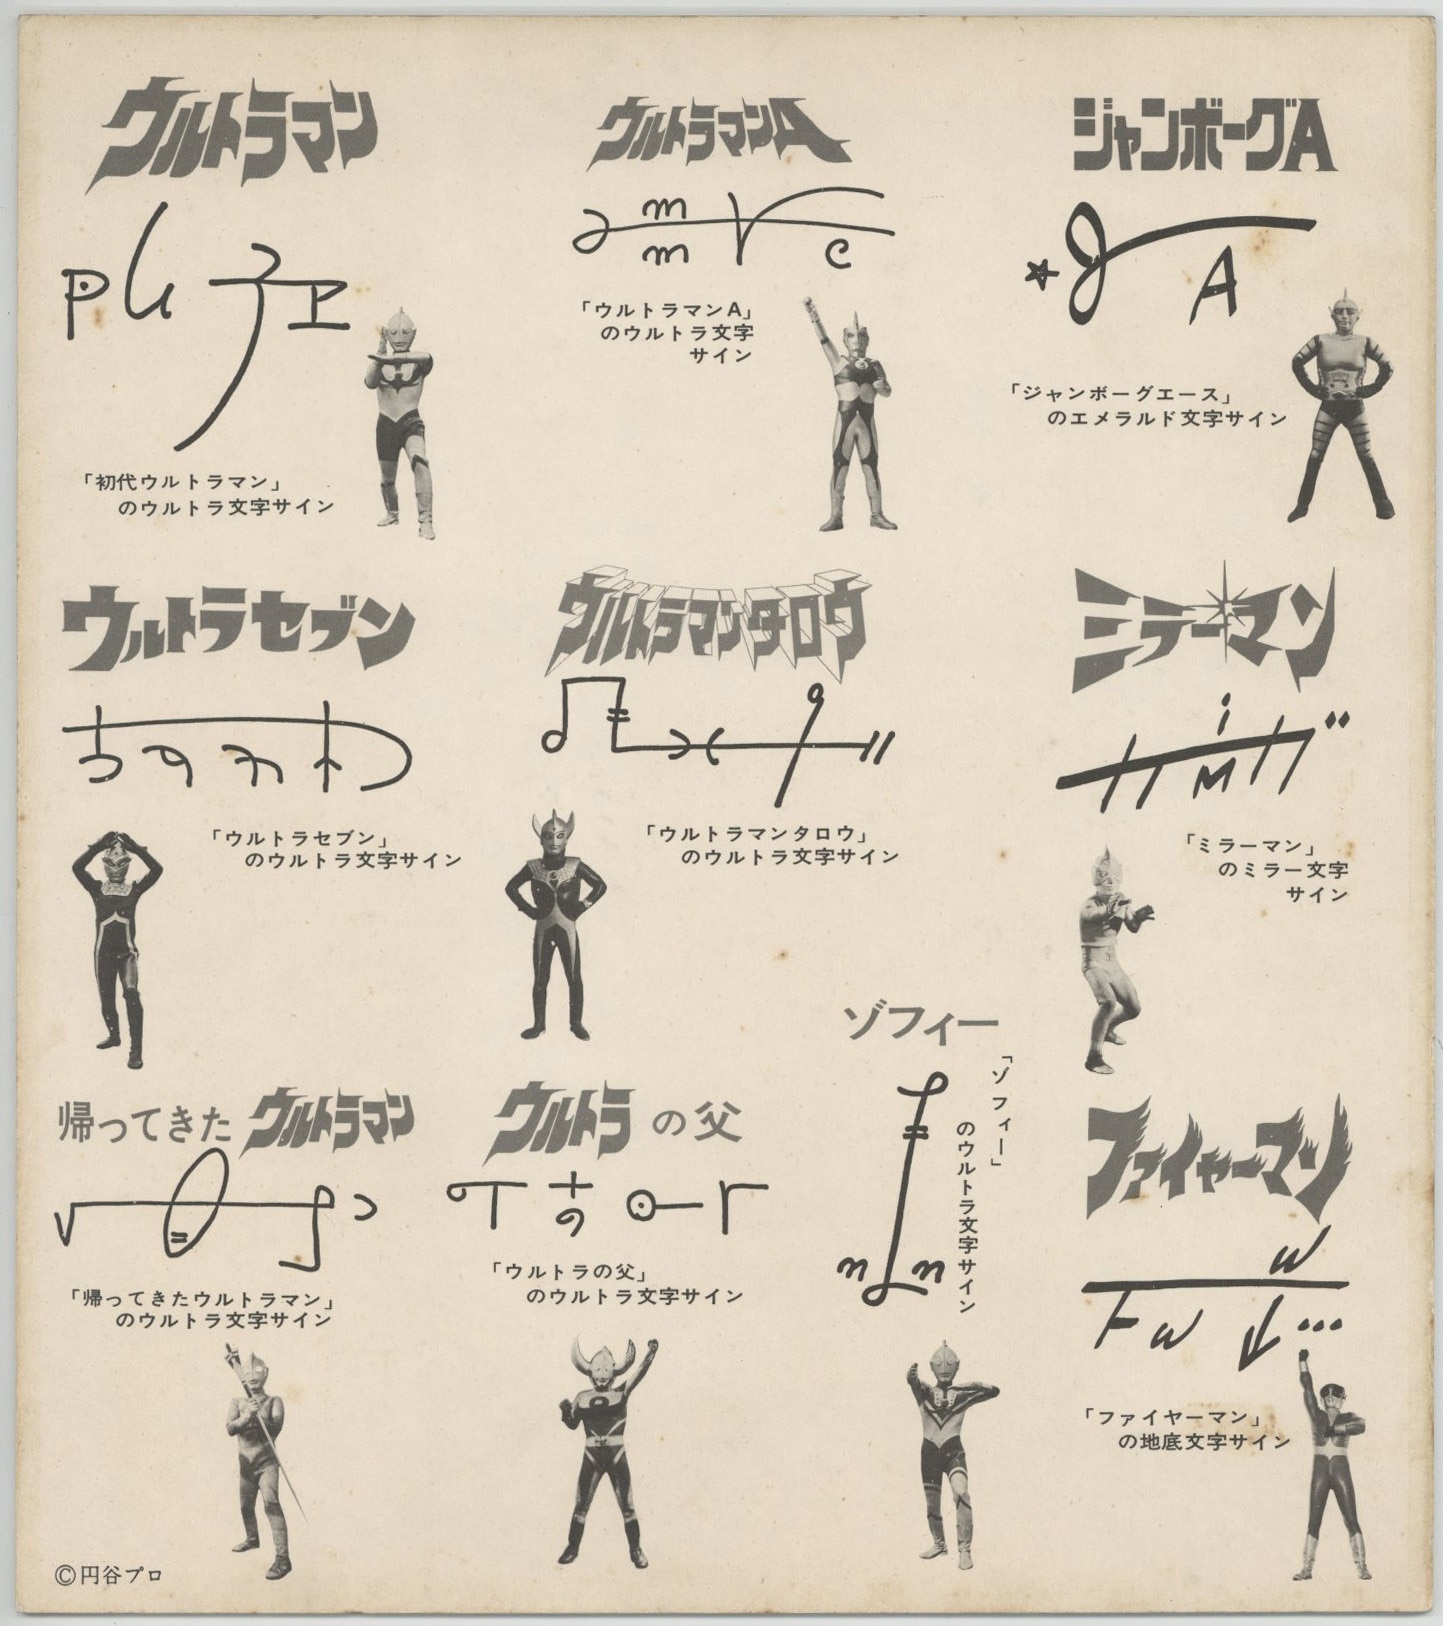 ウルトラマン
「初代ウルトラマン」
のウルトラ文字サイン
ウルトラマンA
m
m
c
「ウルトラマンA」
のウルトラ文字
サイン
ジャンボーグA
A
「ジャンボーグエース」
のエメラルド文字サイン
ウルトラセブン
「ウルトラセブン」
のウルトラ文字サイン
ウルトラマンタロウ
「ウルトラマンタロウ」
のウルトラ文字サイン
ミラーマン
i
M
「ミラーマン」
のミラー文字
サイン
帰ってきたウルトラマン
「帰ってきたウルトラマン」
のウルトラ文字サイン
ウルトラの父
「ウルトラの父」
のウルトラ文字サイン
ゾフィー
n n
「ゾフィー」
のウルトラ文字サイン
ファイヤーマン
w
F w
「ファイヤーマン」
の地底文字サイン
©円谷プロ